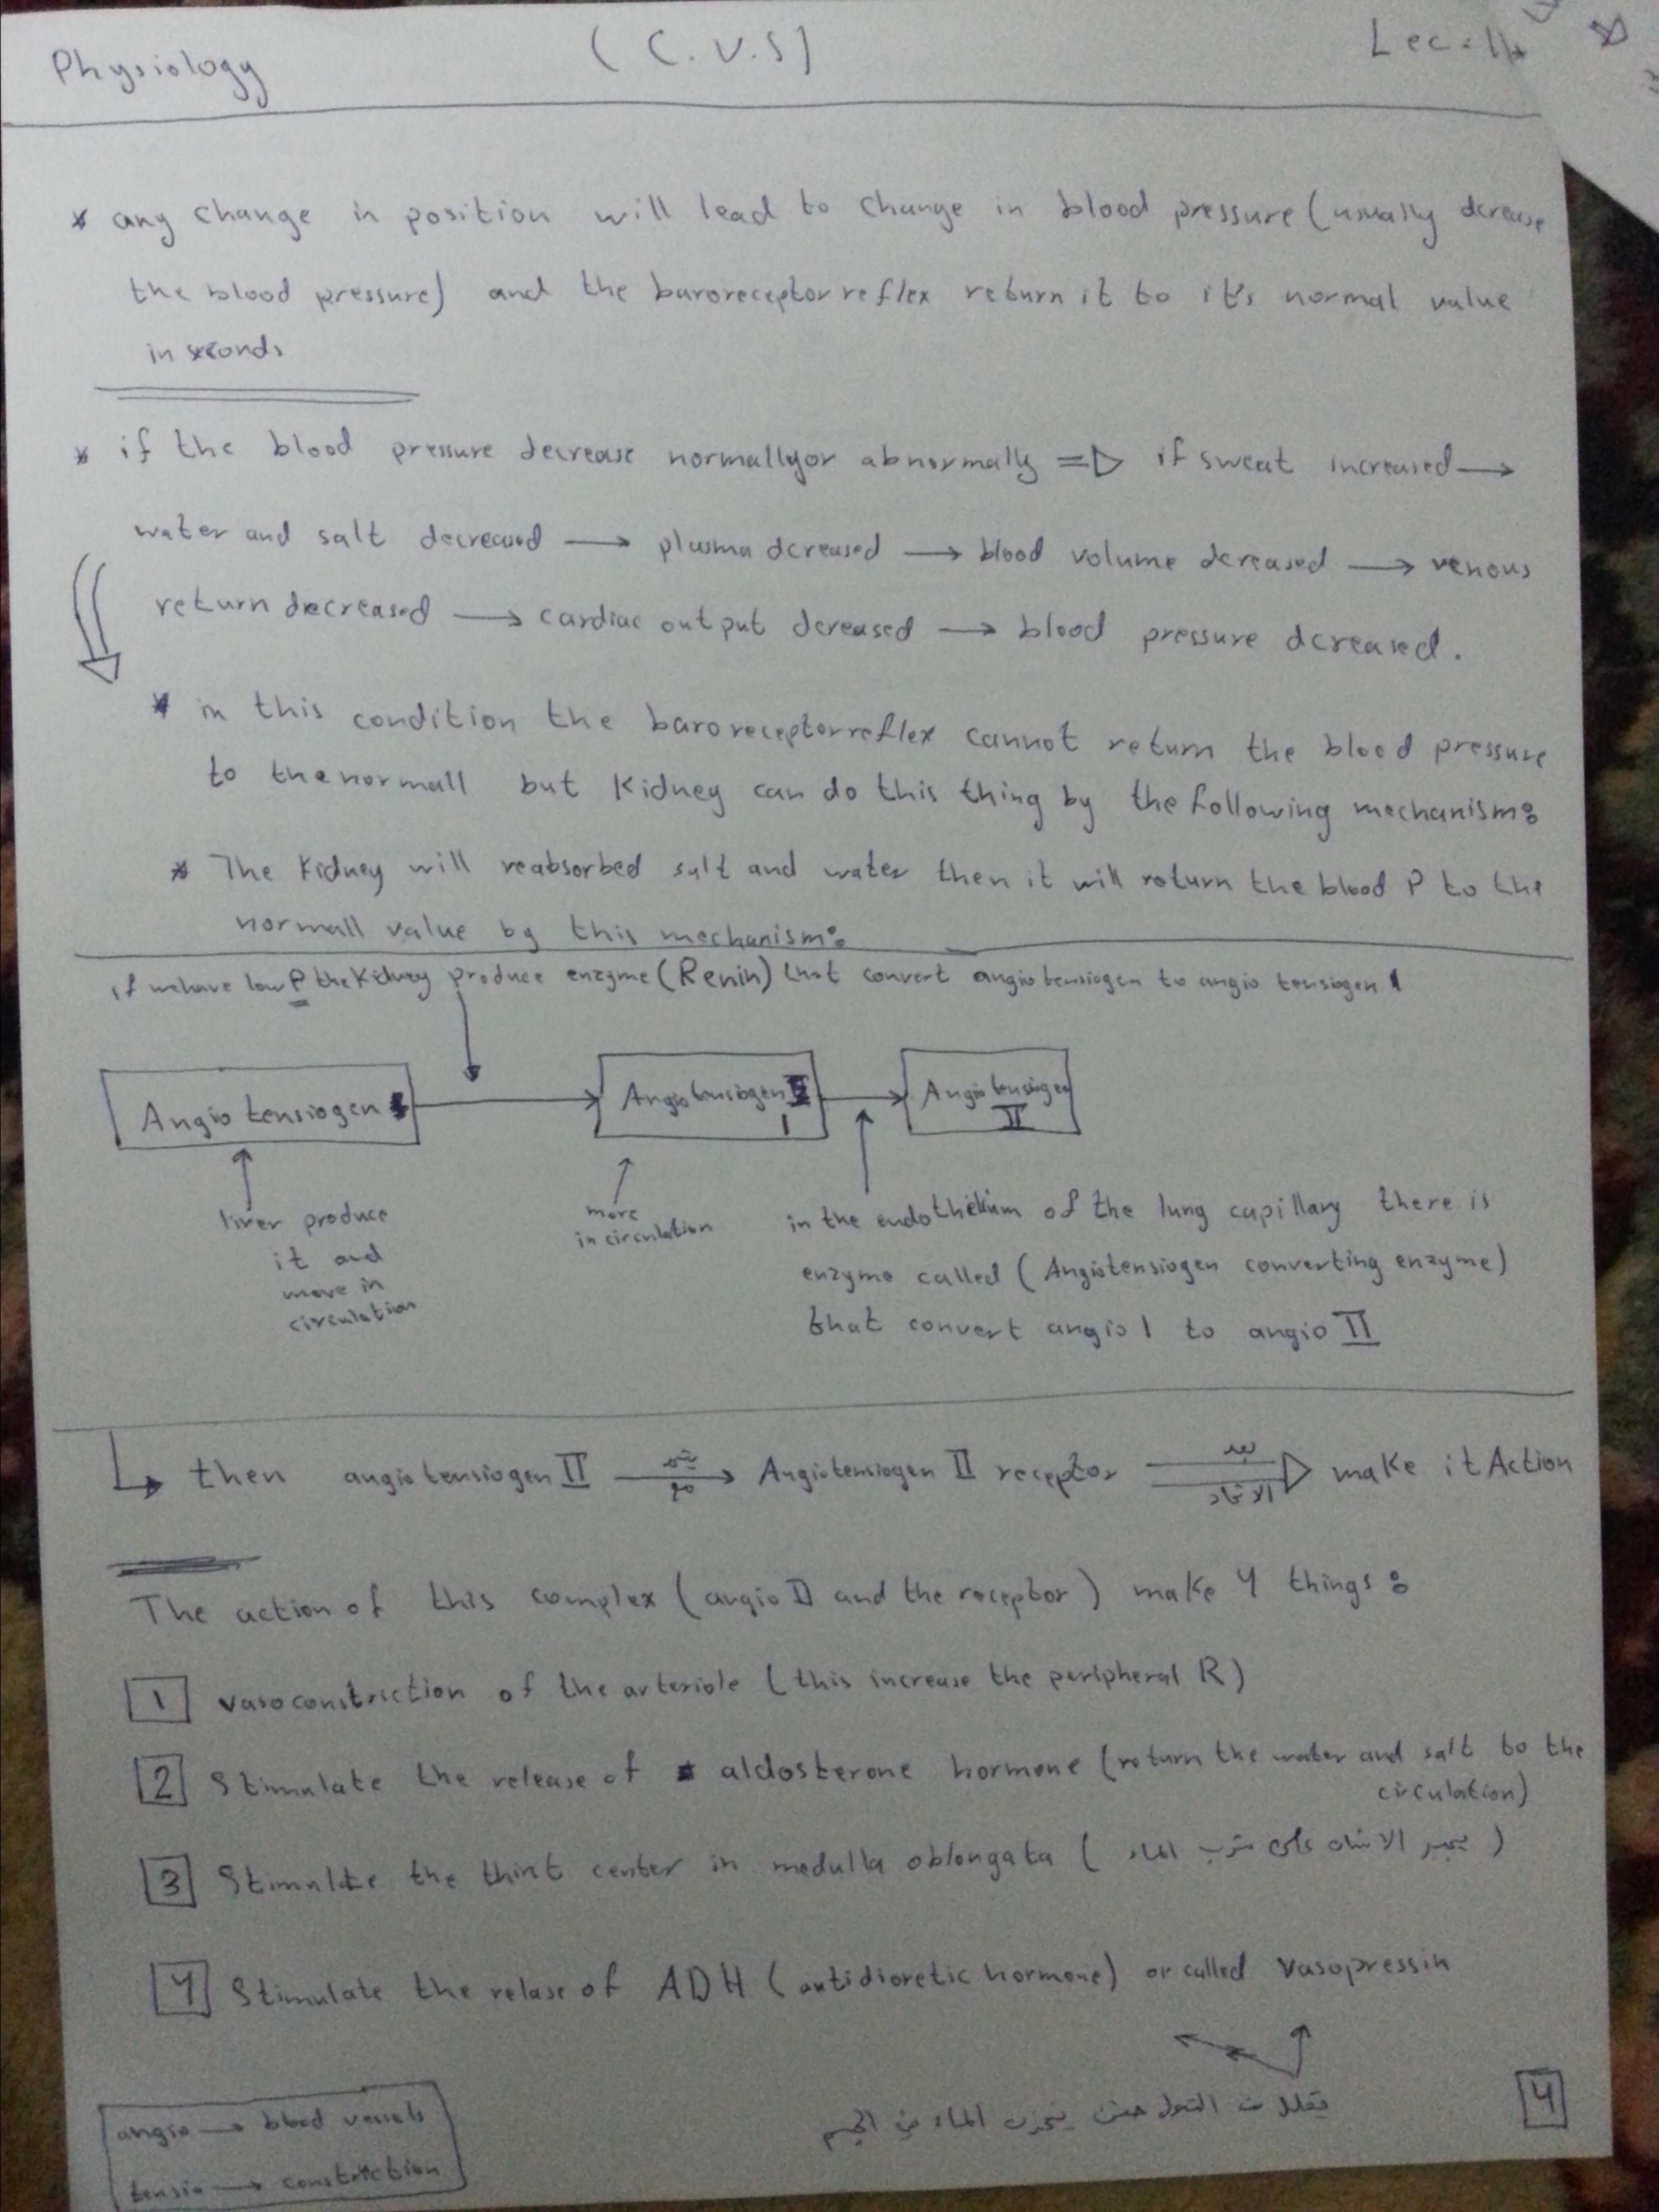 Physiology
(C.V.S)
Lec:
* any change in position will lead to change in blood pressure (usually dcrease
the blood pressure) and the baroreceptor reflex return it to it's normal value
in seconds
* if the blood pressure decrease normally or abnormally => if sweat increased →
water and salt decreased → plasma dcreased → blood volume dcreased → venous
return decreased → cardiac output dcreased → blood pressure dcreased.
* in this condition the baroreceptor reflex cannot return the blood pressure
to the normall but Kidney can do this thing by the following mechanism:
* The Kidney will reabsorbed salt and water then it will return the blood P to the
normall value by this mechanism:
if we have low P the Kidney produce enzyme (Renin) that convert angiotensiogen to angio tensiogen 1
Angio tensiogen
Angiotensiogen I
Angiotensiogen
II
liver produce
it and
move in
circulation
move
in circulation
in the endothelium of the lung capillary there is
enzyme called (Angiotensiogen converting enzyme)
that convert angio 1 to angio II
then angiotensiogen II → Angiotensiogen II receptor بعد الاتحاد make it Action
The action of this complex (angio II and the receptor) make 4 things:
1 vasoconstriction of the arteriole (this increase the peripheral R)
2 Stimulate the release of aldosterone hormone (return the water and salt to the
circulation)
3 Stimulate the thirst center in medulla oblongata (يجبر الانسان على شرب الماء)
4 Stimulate the relase of ADH (antidioretic hormone) or called vasopressin
يقلل من التبول حتى يخزن الماء في الجسم
angio → blood vessels
tensio → constriction
4